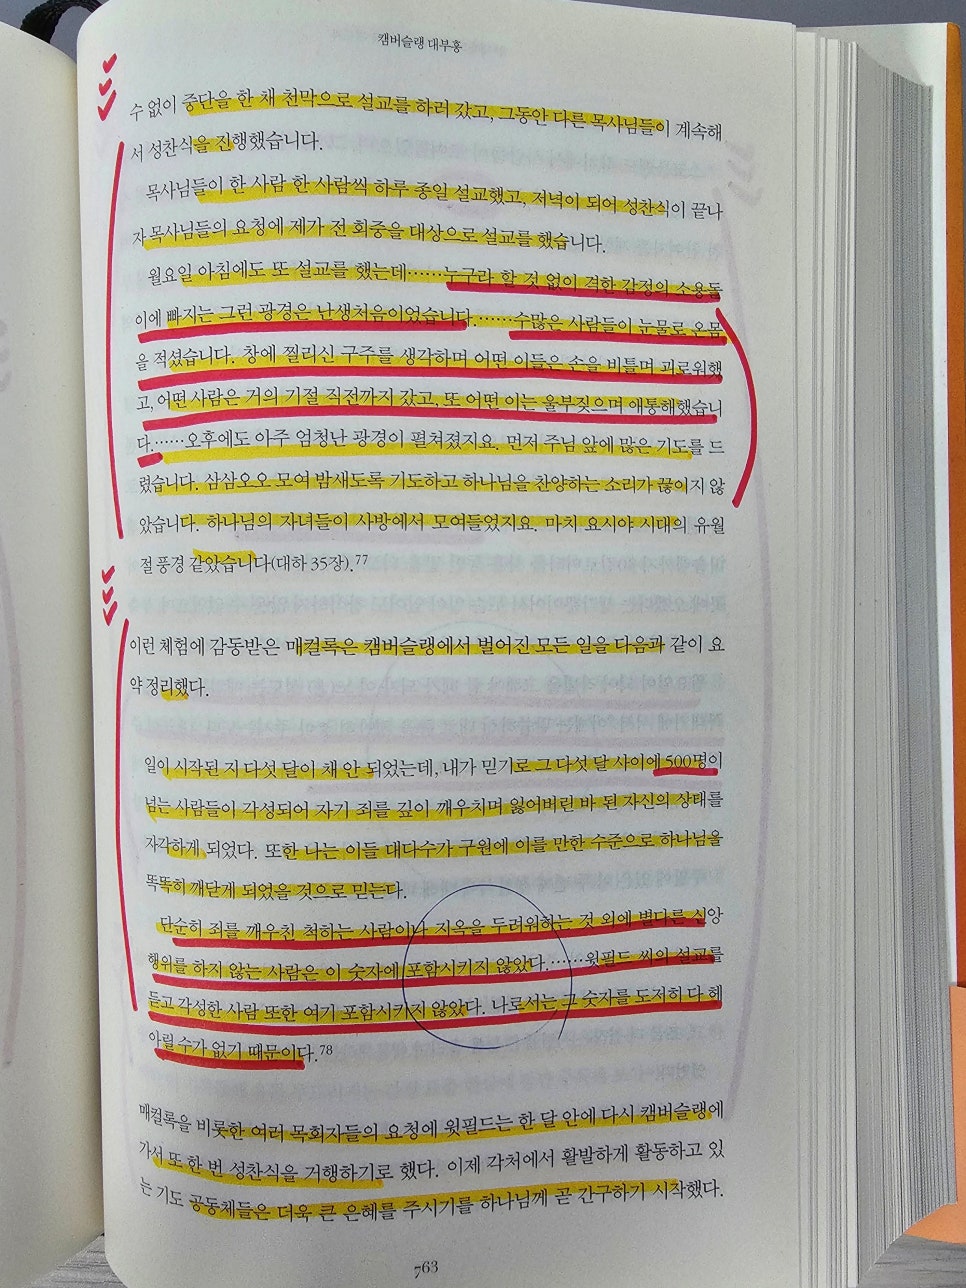 캠버슬랭 대부흥
수 없이 중단을 한 채 천막으로 설교를 하러 갔고, 그동안 다른 목사님들이 계속해
서 성찬식을 진행했습니다.
목사님들이 한 사람 한 사람씩 하루 종일 설교했고, 저녁이 되어 성찬식이 끝나
자 목사님들의 요청에 제가 전 회중을 대상으로 설교를 했습니다.
월요일 아침에도 또 설교를 했는데……누구라 할 것 없이 격한 감정의 소용돌
이에 빠지는 그런 광경은 난생처음이었습니다.……수많은 사람들이 눈물로 온몸
을 적셨습니다. 창에 찔리신 구주를 생각하며 어떤 이들은 손을 비틀며 괴로워했
고, 어떤 사람은 거의 기절 직전까지 갔고, 또 어떤 이는 울부짖으며 애통해했습니
다.……오후에도 아주 엄청난 광경이 펼쳐졌지요. 먼저 주님 앞에 많은 기도를 드
렸습니다. 삼삼오오 모여 밤새도록 기도하고 하나님을 찬양하는 소리가 끊이지 않
았습니다. 하나님의 자녀들이 사방에서 모여들었지요. 마치 요시야 시대의 유월
절 풍경 같았습니다(대하 35장).77
이런 체험에 감동받은 매컬록은 캠버슬랭에서 벌어진 모든 일을 다음과 같이 요
약 정리했다.
일이 시작된 지 다섯 달이 채 안 되었는데, 내가 믿기로 그 다섯 달 사이에 500명이
넘는 사람들이 각성되어 자기 죄를 깊이 깨우치며 잃어버린 바 된 자신의 상태를
자각하게 되었다. 또한 나는 이들 대다수가 구원에 이를 만한 수준으로 하나님을
똑똑히 깨닫게 되었을 것으로 믿는다.
단순히 죄를 깨우친 척하는 사람이나 지옥을 두려워하는 것 외에 별다른 신앙
행위를 하지 않는 사람은 이 숫자에 포함시키지 않았다.……윗필드 씨의 설교를
듣고 각성한 사람 또한 여기 포함시키지 않았다. 나로서는 그 숫자를 도저히 다 헤
아릴 수가 없기 때문이다.78
매컬록을 비롯한 여러 목회자들의 요청에 윗필드는 한 달 안에 다시 캠버슬랭에
가서 또 한 번 성찬식을 거행하기로 했다. 이제 각처에서 활발하게 활동하고 있
는 기도 공동체들은 더욱 큰 은혜를 주시기를 하나님께 곧 간구하기 시작했다.
763